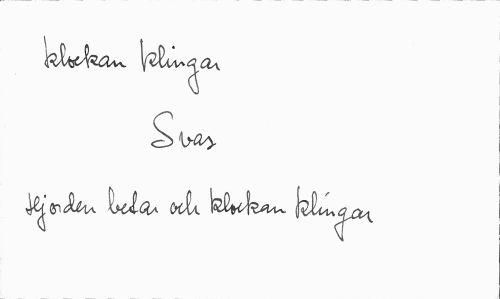 klockan klingar
Svar
Hjorden betar och klockan klingar